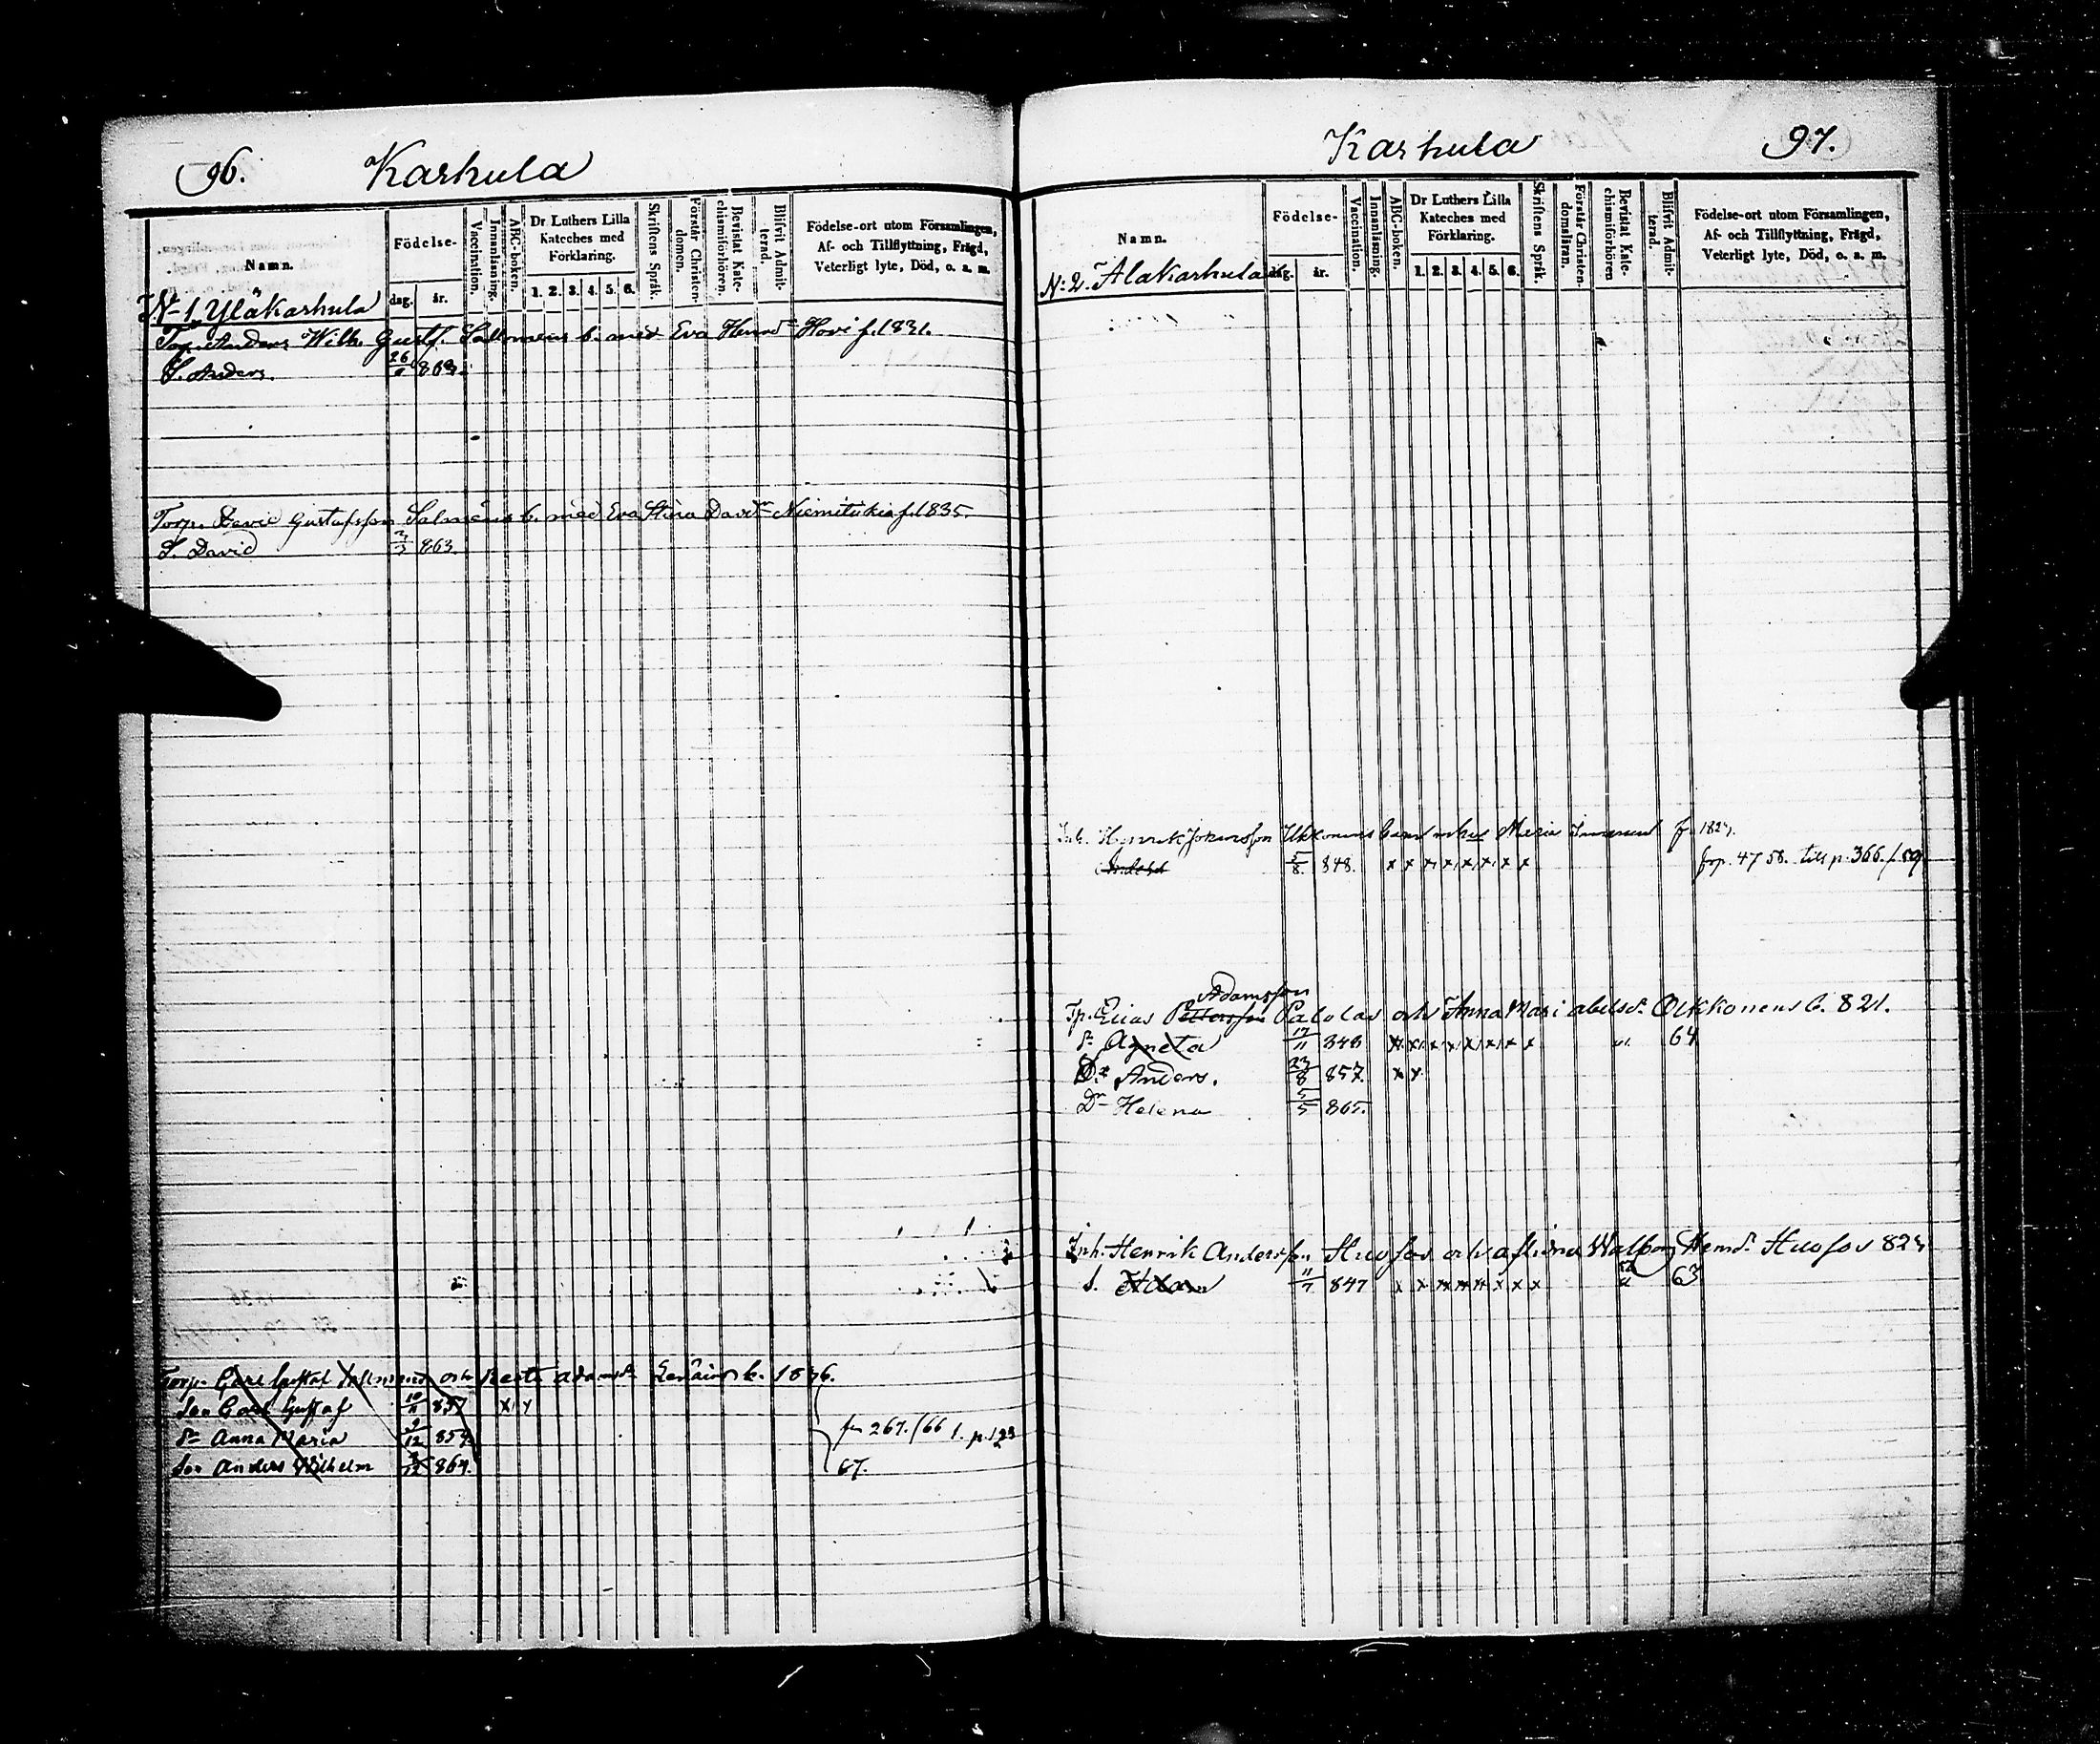 96.
Karhula
Namn.
Födelse-
dag.
år.
Vaccination.
Innanläsning.
ABC-boken.
Dr Luthers Lilla Kateches med Förklaring.
1. 2. 3. 4. 5. 6.
Skriftens Språk.
Förstår Christendomen.
Bevistat Katechismiförhören.
Blifvit Admitterad.
Födelse-ort utom Församlingen, Af- och Tillflyttning, Frägd, Veterligt lyte, Död, o. s. m.
N 1. Yläkarhula
Torp. Anders Wilh. Gustf. Salmens b. med Eva Henrd Hovi f. 1831.
S. Anders. 26 863
Torp. David Gustafsson Salmens b. med Eva Stina Davdr Niemitukia f. 1835.
S. David 863
Torp. Carl Gustaf och adamsd. b. 1836.
Son Carl Gustaf 10/11 857 x x
Dr Anna Maria 9/12 859 267. /66 p. 123
Son Anders Wilhelm 864. 67.
Karhula
97.
Namn.
Födelse-
dag.
år.
Vaccination.
Innanläsning.
ABC-boken.
Dr Luthers Lilla Kateches med Förklaring.
1. 2. 3. 4. 5. 6.
Skriftens Språk.
Förstår Christendomsläran.
Bevistat Katechismiförhören
Blifvit Admitterad.
Födelse-ort utom Församlingen, Af- och Tillflyttning, Frägd, Veterligt lyte, Död, o. s. m.
N: 2. Alakarhula
Inh. Henrik Johansson Ukkonens Maria f. 1827.
5/8 848. x x x x x x x x frp. 47 58. till p. 366. / 69
Adamsson
Tp. Elias Pettersson Palolas och Anna Mari abelsd. Ukkonens b. 821.
Dr Agneta 17/11 848 x x x x x x x x 64
Sn Anders. 23/8 857. x x
Dr Helena 5/5 865.
Inh. Henrik Andersson Husfos och aflidna Walborg Hemd. Husfos 827
S. 11/7 847 x x x x x x x x 63